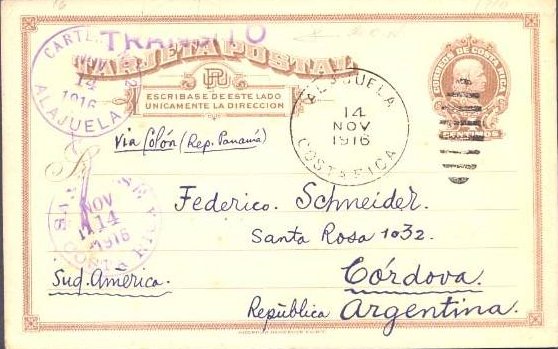 TRANSITO
TARJETA POSTAL
CORREOS DE COSTA RICA
CENTIMOS
UPR
ESCRIBASE DE ESTE LADO
UNICAMENTE LA DIRECCION
CARTE
NOV
14
1916
ALAJUELA
ALAJUELA
14
NOV
1916
COSTA RICA
Via Colón (Rep. Panamá)
NOV
14
1916
Federico. Schneider.
Santa Rosa 1032.
Córdova.
Sud. América.
República Argentina.